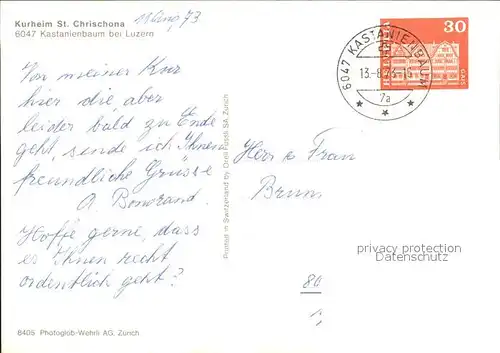 Kurheim St. Chrischona
6047 Kastanienbaum bei Luzern
11. Aug. 73
Von meiner Kur
hier die, aber
leider bald zu Ende
geht, sende ich Ihnen
freundliche Grüsse
A. Bonorand.
Hoffe gerne, dass
es Ihnen recht
ordentlich geht?
8405 Photoglob-Wehrli AG, Zürich
Printed in Switzerland by Orell Füssli SA, Zürich
6047 KASTANIENBAUM
13.-8.73.-15
7a
HELVETIA
30
GAIS
Herr & Frau
Brunn
privacy protection
Datenschutz
80